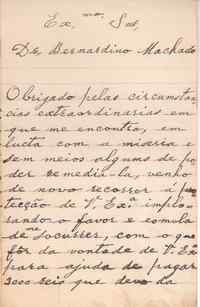 Ex.mo Snr.
Dr. Bernardino Machado
Obrigado pelas circumstan
cias extraordinarias em
que me encontro, em
lucta com a miseria e
sem meios alguns de po
der remedial-a, venho
de novo recorrer á pro
tecção de V. Exª implo
rando o favor e esmola
de me socurrer, com o que
fôr da vontade de V. Exª
para ajuda de pagar
3000 reis que devo da